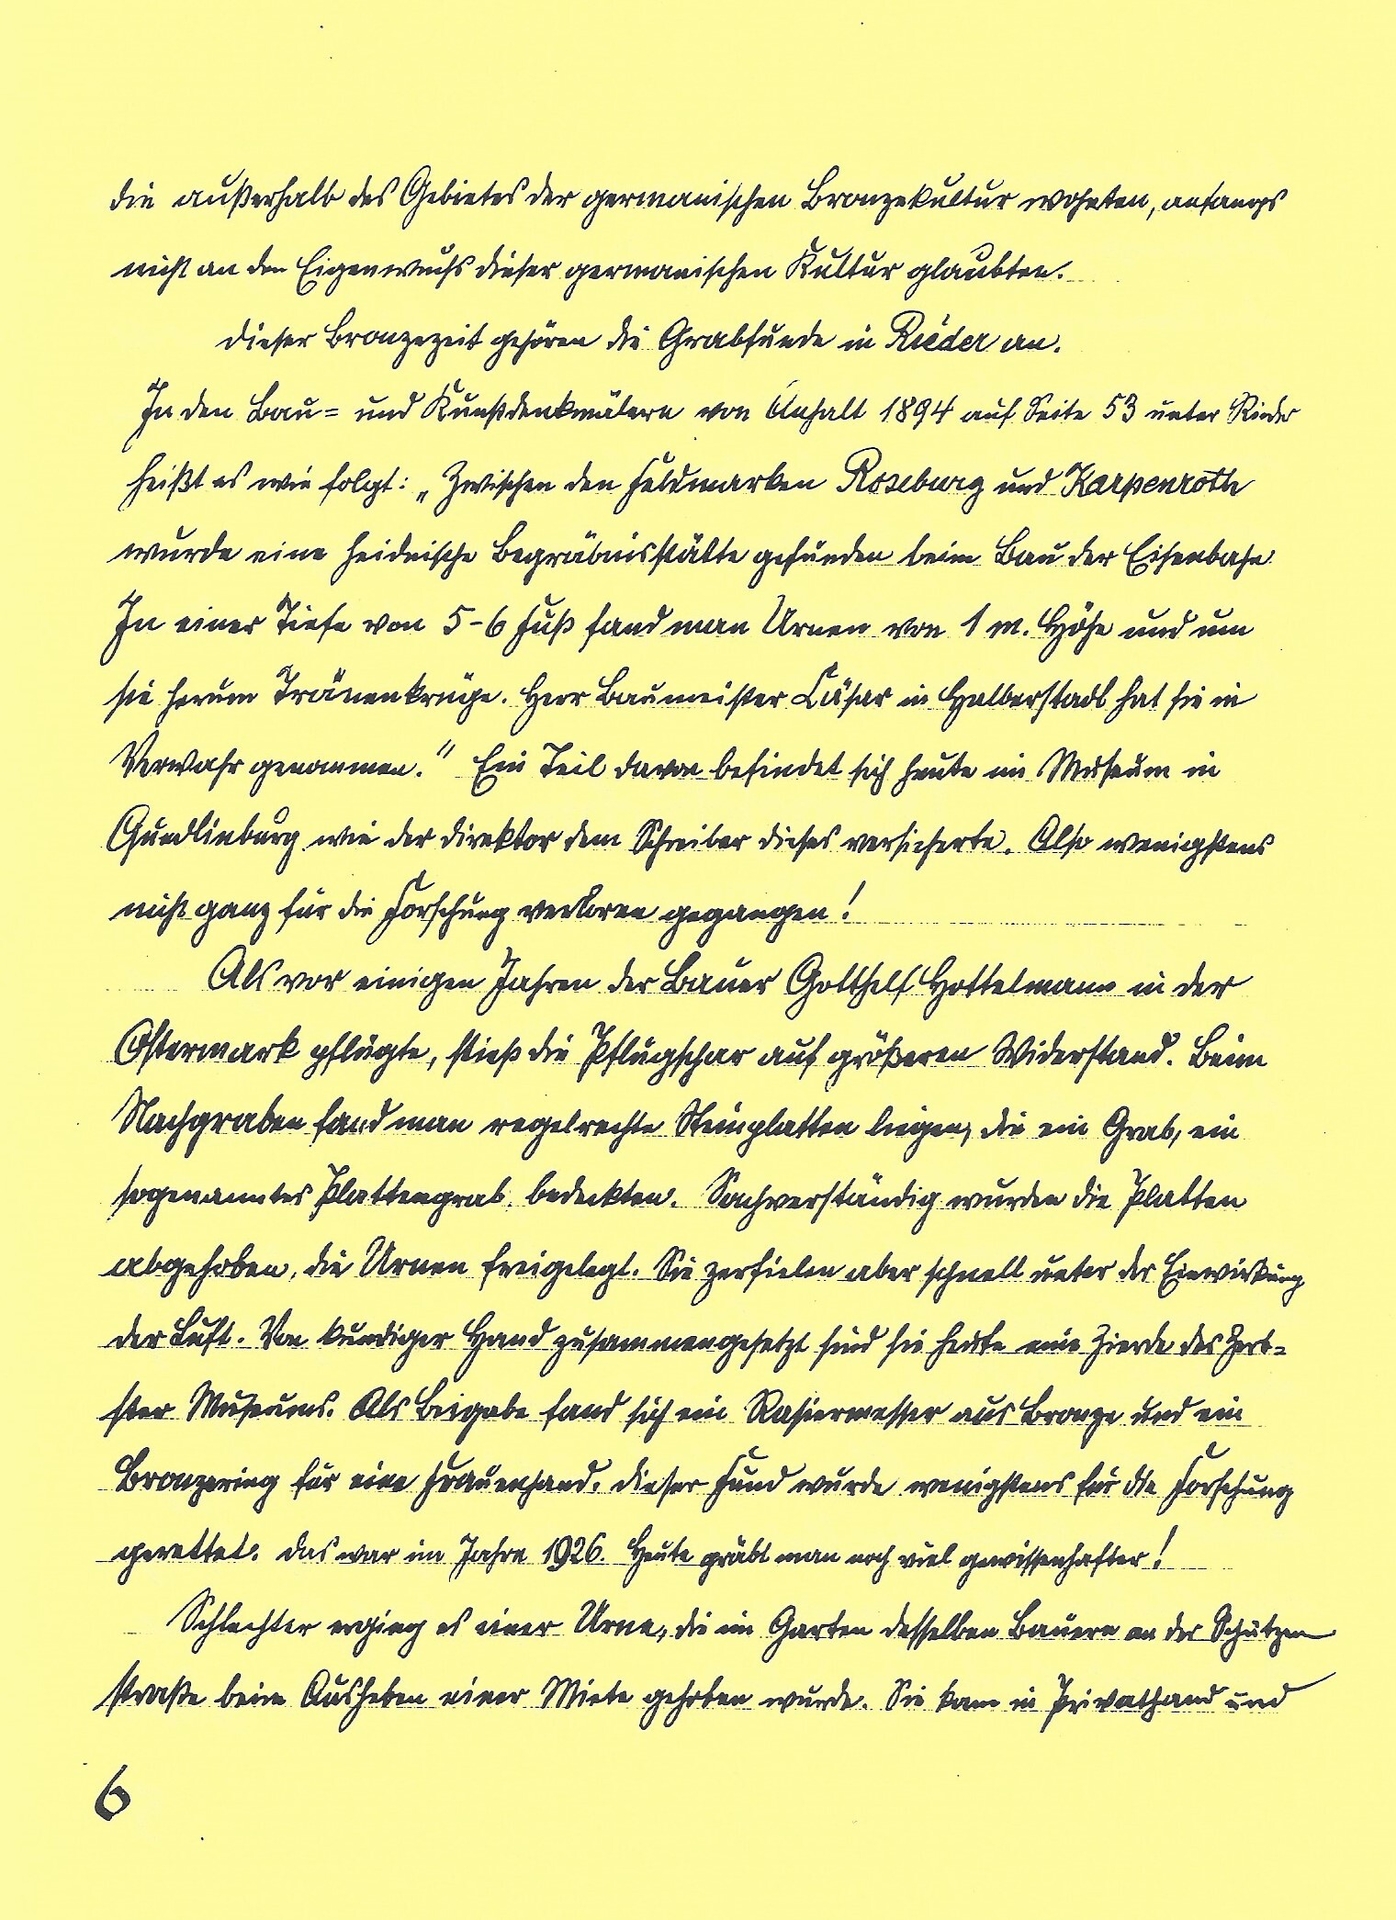 die außerhalb des Gebietes der germanischen Bronzekultur wohnten, anfangs
nicht an den Eigenwuchs dieser germanischen Kultur glaubten.
Dieser Bronzezeit gehören die Grabfunde in Rieder an.
In den Bau= und Kunstdenkmälern von Anhalt 1894 auf Seite 53 unter Rieder
heißt es wie folgt: „Zwischen den Feldmarken Roseburg und Karpenroth
wurde eine heidnische Begräbnisstätte gefunden beim Bau der Eisenbahn
In einer Tiefe von 5-6 Fuß fand man Urnen von 1 m. Höhe und um
sie herum Tränenkrüge. Herr Baumeister Cäsar in Halberstadt hat sie in
Verwahr genommen." Ein Teil davon befindet sich heute im Museum in
Quedlinburg wie der Direktor dem Schreiber dieses versicherte. Also wenigstens
nicht ganz für die Forschung verloren gegangen!
Als vor einigen Jahren der Bauer Gotthelf Hottelmann in der
Ostermark pflügte, stieß die Pflugschar auf größeren Widerstand. Beim
Nachgraben fand man regelrechte Steinplatten liegen, die ein Grab, ein
sogenanntes Plattengrab, bedeckten. Sachverständig wurden die Platten
abgehoben, die Urnen freigelegt. Sie zerfielen aber schnell unter der Einwirkung
der Luft. Von kundiger Hand zusammengesetzt sind sie heute eine Zierde des Zerb=
ster Museums. Als Beigabe fand sich ein Rasiermesser aus Bronze und ein
Bronzering für eine Frauenhand. Dieser Fund wurde wenigstens für die Forschung
gerettet. Das war im Jahre 1926. Heute gräbt man noch viel gewissenhafter!
Schlechter erging es einer Urne, die im Garten desselben Bauern an der Schützen
straße beim Ausheben einer Miete gehoben wurde. Sie kam in Privathand und
6